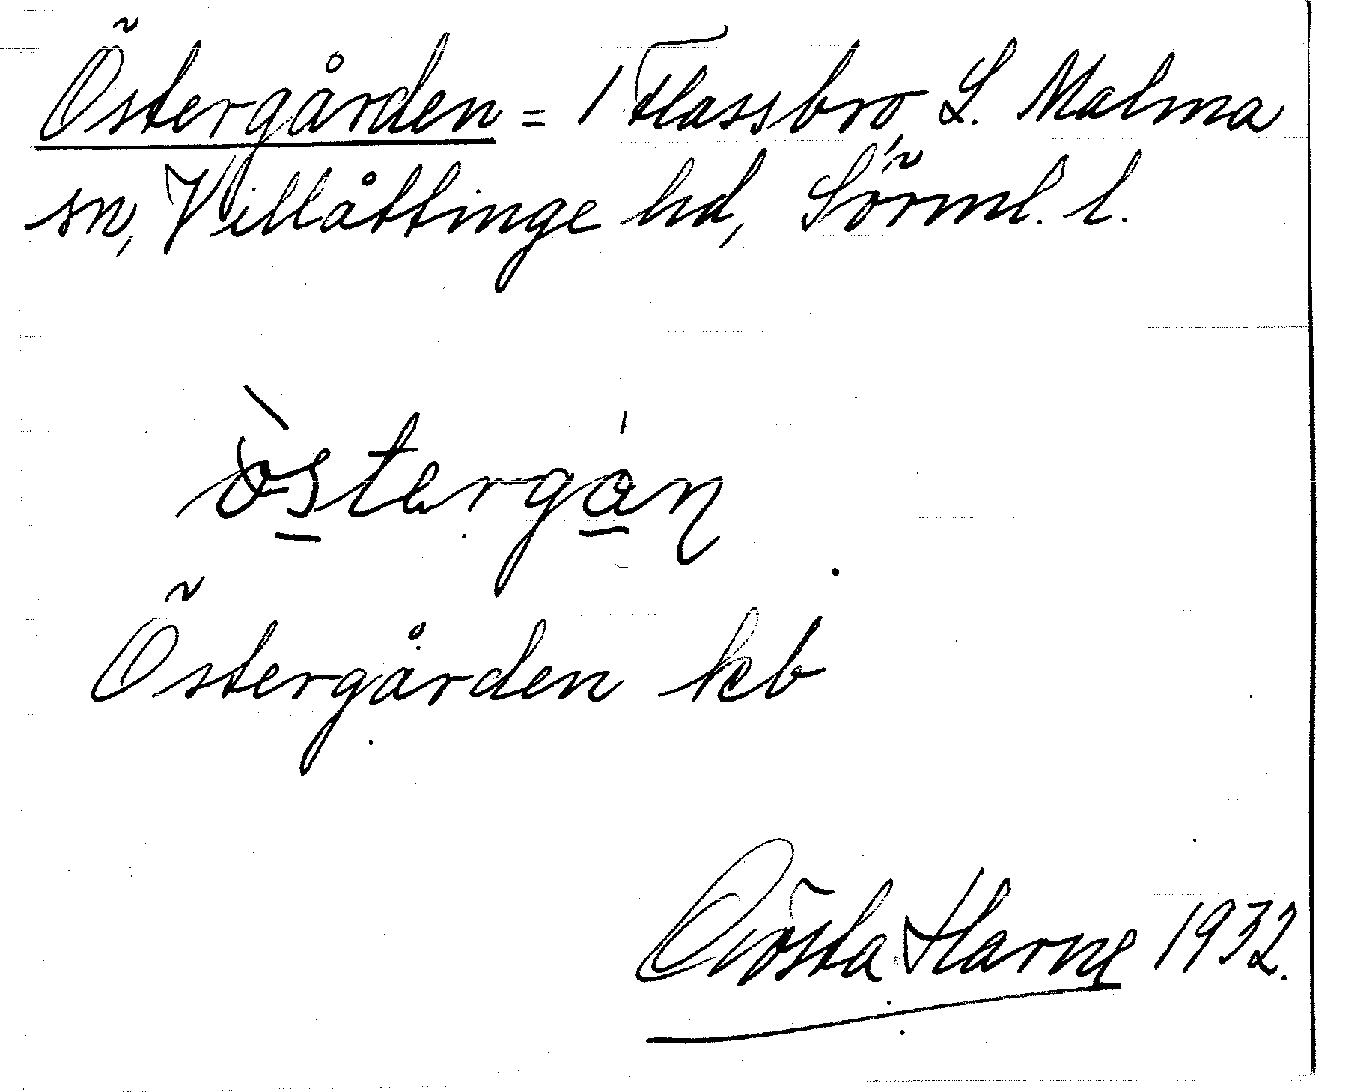 Östergården = 1 Hassbro, L. Malma
sn, Villåttinge hd, Sörml. l.
östergan
Östergården kb
Gösta Harne 1932.